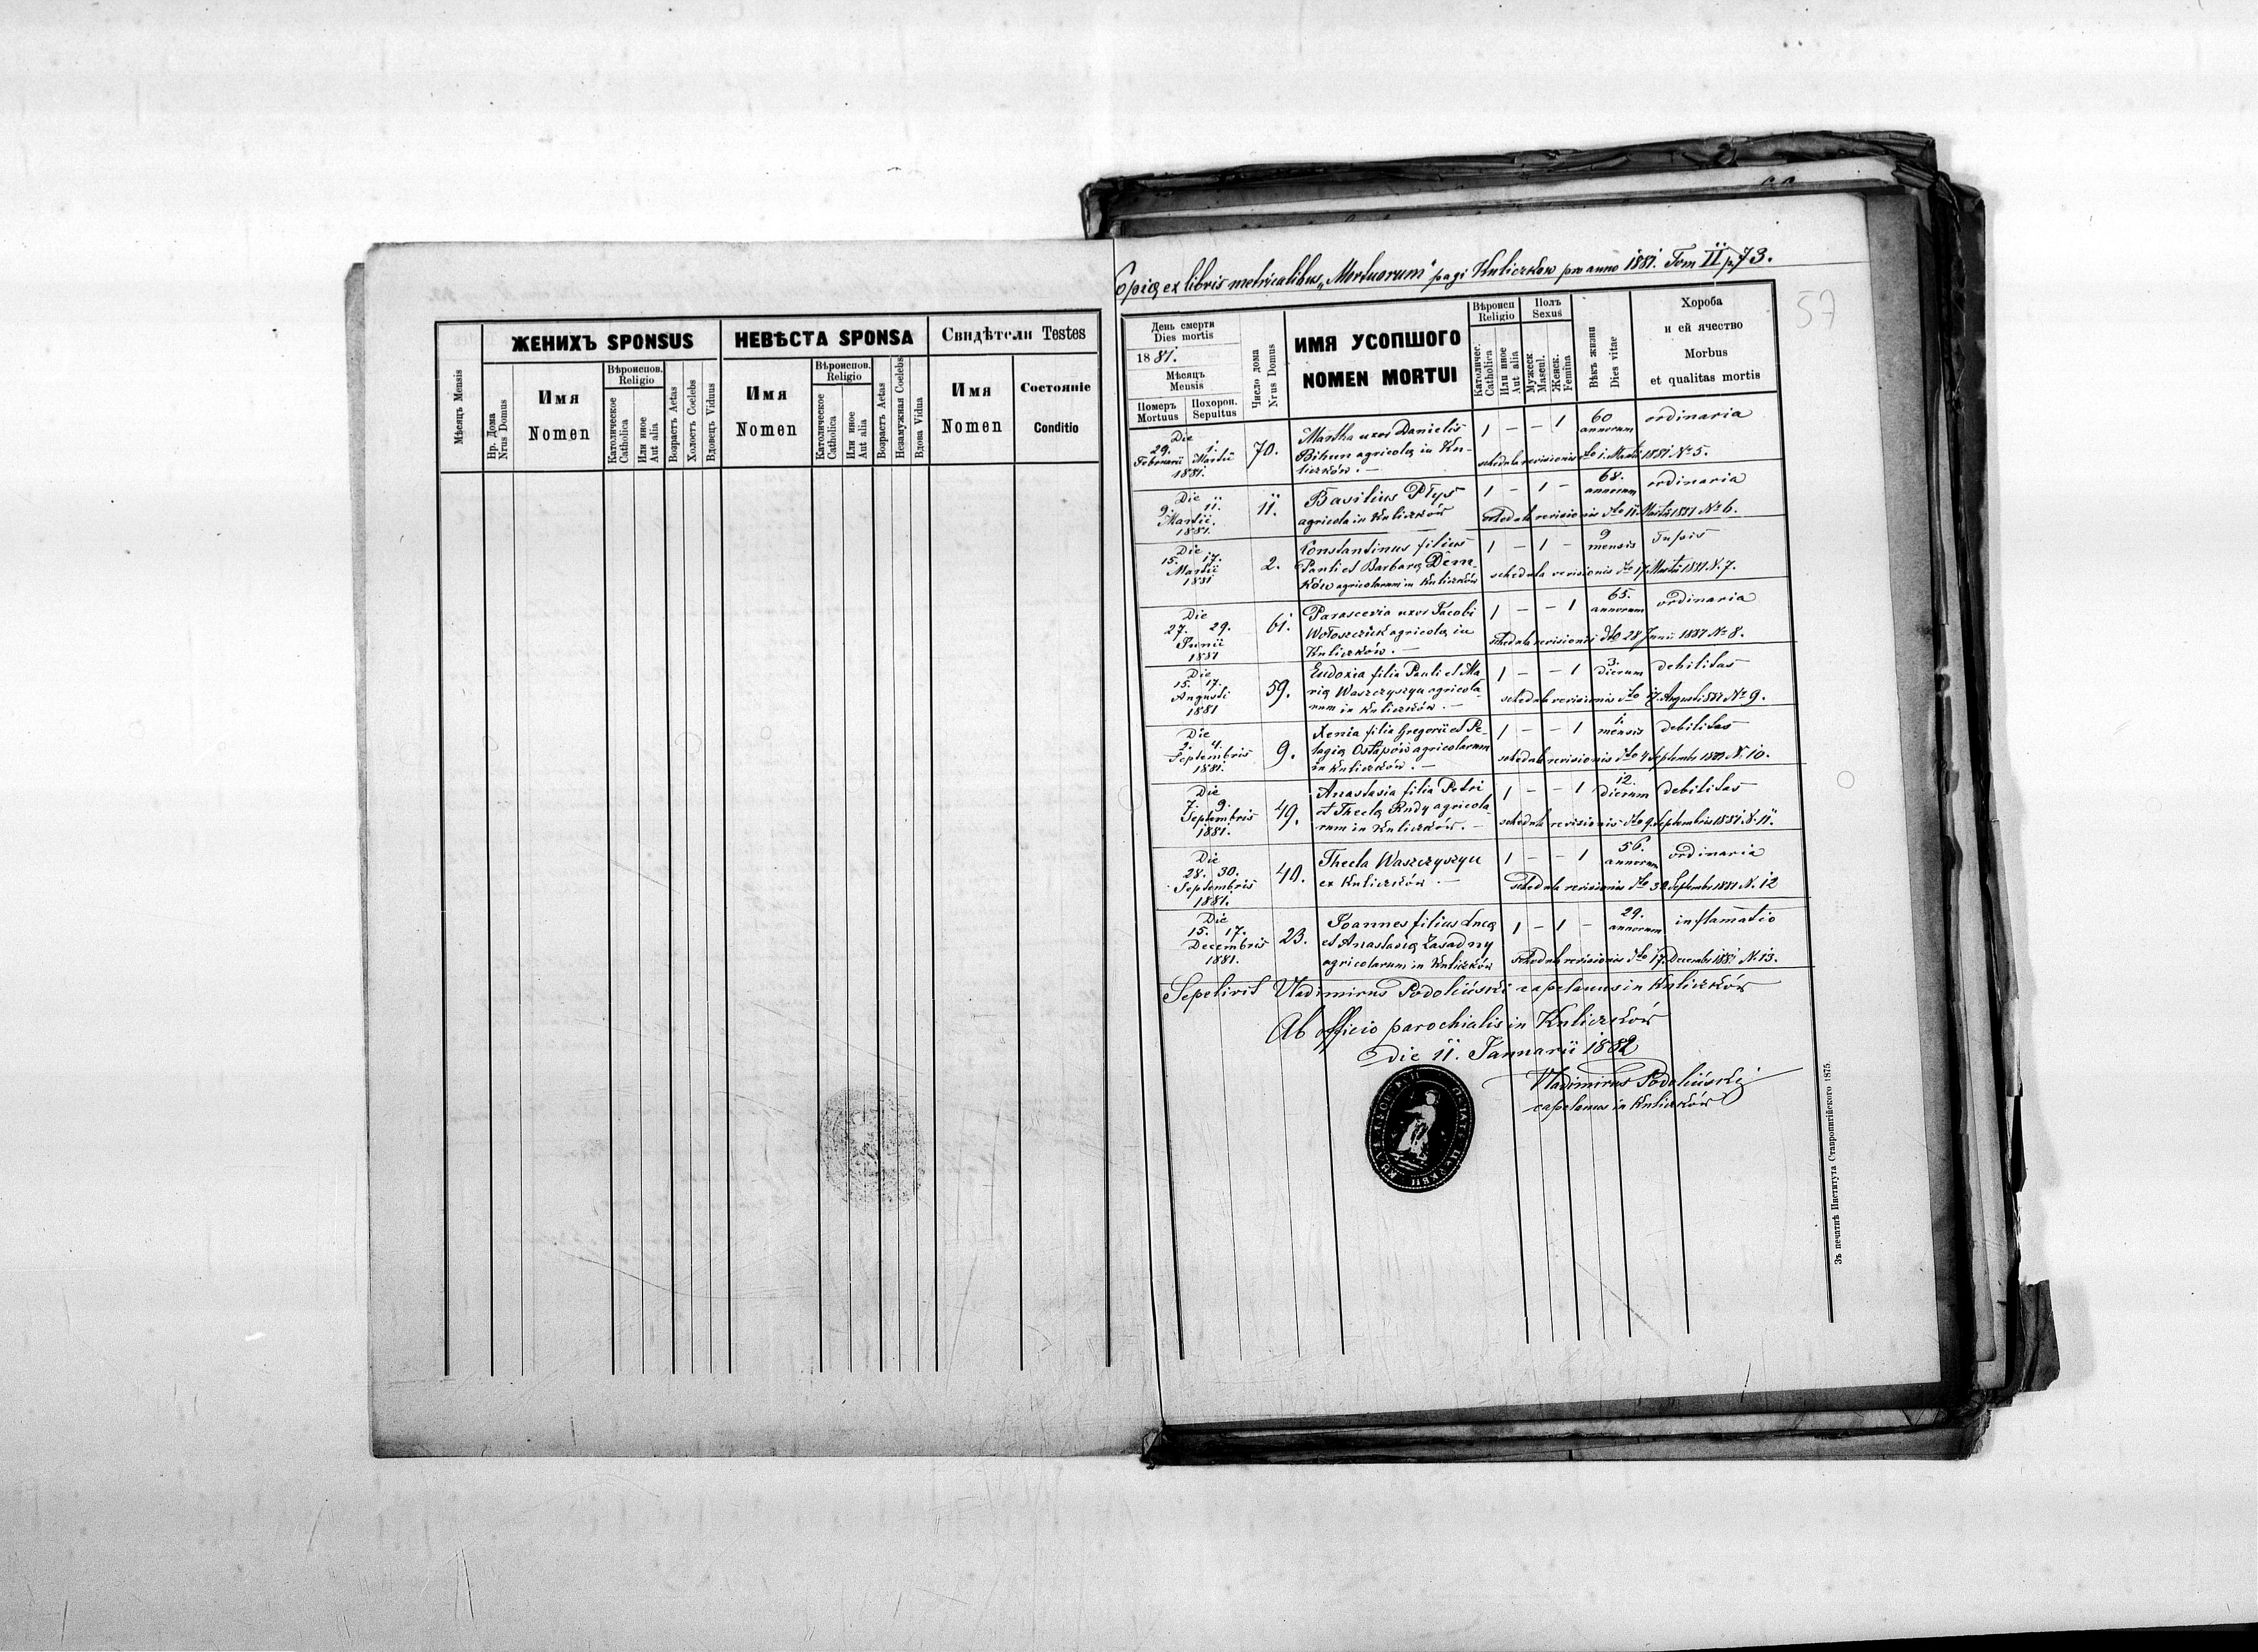 ЖЕНИХЪ SPONSUS
НЕВѢСТА SPONSA
Свидѣтели Testes
Мѣсяцъ Mensis
Нр. Дома
Nrus Domus
Имя
Nomen
Вѣроиспов.
Religio
Католическое
Catholica
Или иное
Aut alia
Возрастъ Aetas
Холостъ Coelebs
Вдовецъ Viduus
Имя
Nomen
Вѣроиспов.
Religio
Католическое
Catholica
Или иное
Aut alia
Возрастъ Aetas
Незамужная Coelebs
Вдова Vidua
Имя
Nomen
Состояніе
Conditio
Copia ex libris metricalibus „Mortuorum" pagi Kuliczkow pro anno 1881. Tom II p. 73.
57
День смерти
Dies mortis
1881.
Мѣсяцъ
Mensis
Померъ
Mortuus
Похорон.
Sepultus
Число дома
Nrus Domus
ИМЯ УСОПШОГО
NOMEN MORTUI
Вѣроисп
Religio
Католичес.
Catholica
Или иное
Aut alia
Полъ
Sexus
Мужеск
Mascul.
Женск.
Femina
Вѣкъ жизни
Dies vitae
Хороба
и ей ячество
Morbus
et qualitas mortis
Die
29. 1.
Februarii Martii
1881.
70.
Martha uxor Danielis
Bihun agricola in Ku-
liczków. —
1 – – 1
60
annorum
ordinaria
schedula revisionis dto 1. Martii 1881 № 5.
Die
9. 11.
Martii.
1881.
11.
Basilius Płys
agricola in Kuliczków
1 – 1 –
68.
annorum
ordinaria
schedula revisionis dto 11 Martii 1881 № 6.
Die
15. 17.
Martii
1881
2.
Constantinus filius
Pauli et Barbara Dem-
ków agricolarum in Kuliczków
1 – 1 –
9
mensis
Tussis
schedula revisionis dto 17 Martii 1881 N. 7.
Die
27. 29.
Junii
1881
61.
Parascevia uxor Jacobi
Wołoszczuk agricola in
Kuliczków. —
1 – – 1
65.
annorum
ordinaria
schedula revisionis dto 28 Junii 1881 № 8.
Die
15. 17.
Augusti
1881
59.
Eudoxia filia Pauli et Ma
ria Waszczyszyn agricola-
rum in Kuliczków. —
1 – – 1
3.
dierum
debilitas
schedula revisionis dto 17. Augusti 1881 № 9.
Die
2. 4.
Septembris
1881.
9.
Xenia filia Gregorii et Pe-
lagia Ostapów agricolarum
in Kuliczków. —
1 – – 1
1.
mensis
debilitas
schedula revisionis dto 4 Septembr 1881 N. 10.
Die
7. 9.
Septembris
1881.
49.
Anastasia filia Petri
et Thecla Rudy agricola
rum in Kuliczków. —
1 – – 1
12.
dierum
debilitas
schedula revisionis dto 9. Septembris 1881. N. 11.
Die
28. 30.
Septembris
1881.
40.
Thecla Waszczyszyn
ex Kuliczków —
1 – – 1
56.
annorum
ordinaria
schedula revisionis dto 30 Septembr 1881 N. 12
Die
15. 17.
Decembris
1881.
23.
Joannes filius Luca
et Anastasia Zasadny
agricolarum in Kuliczków
1 – 1 –
29.
annorum
inflamatio
schedula revisionis dto 17. Decembr 1881 N. 13.
Sepelivit Vladimirus Podoliński capelanus in Kuliczków
Ab officio parochialis in Kuliczków
Die 11. Januarii 1882
Vladimirus Podoliński
capelanus in Kuliczków
Зъ печатнѣ Института Ставропигійского 1875.